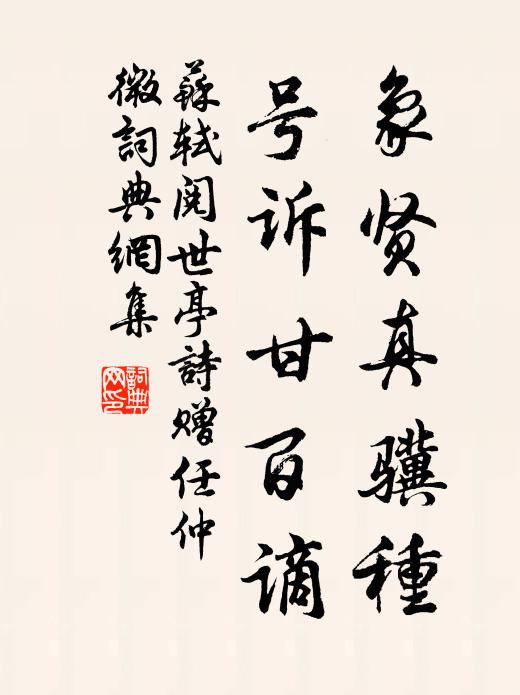 象贤真骥種
号诉甘百谪
蘇軾閱世亭詩贈任仲
微詞典網集
詞典
网印